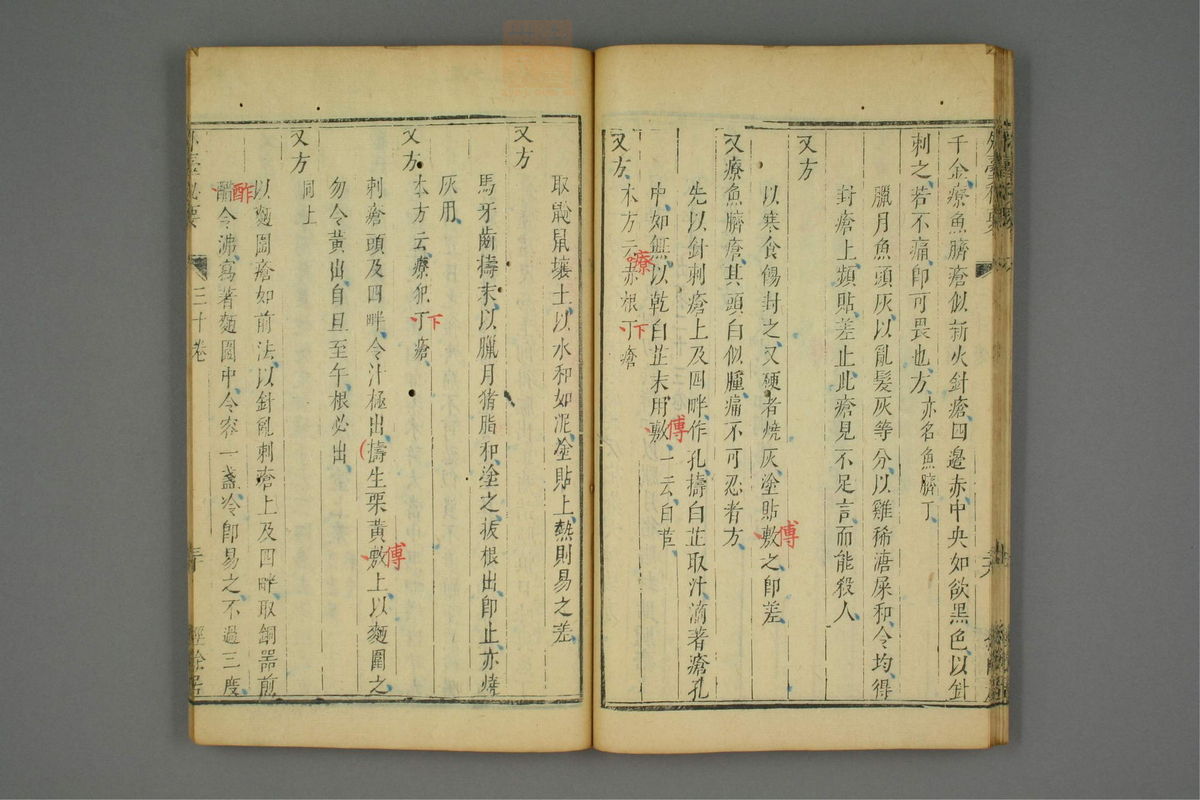 千金療魚臍瘡似新火針瘡四邊赤中央如欲黑色以針
刺之若不痛卽可畏也方亦名魚臍丁
臘月魚頭灰以亂髮灰等分以雞稀溏屎和令均得
封瘡上頻貼差止此瘡見不足言而能殺人
又方
以寒食餳封之又硬者燒灰塗貼敷之卽差
傅
又療魚臍瘡其頭白似腫痛不可忍者方
先以針刺瘡上及四畔作孔擣白芷取汁滴著瘡孔
中如無以乾白芷末用敷一云白苣
傅
又方本方云赤根丁瘡
療
下
取鼢鼠壤土以水和如泥塗貼上熱則易之差
又方
馬牙齒擣末以臘月猪脂和塗之拔根出卽止亦燒
灰用
又方本方云療犯丁瘡
下
刺瘡頭及四畔令汁極出擣生栗黃敷上以麵圍之
傅
勿令黃出自旦至午根必出
又方同上
以麵圍瘡如前法以針亂刺瘡上及四畔取銅器煎
醋令沸寫著麵圍中令容一盞冷卽易之不過三度
酢
外臺秘要
三十卷
三十
經餘居